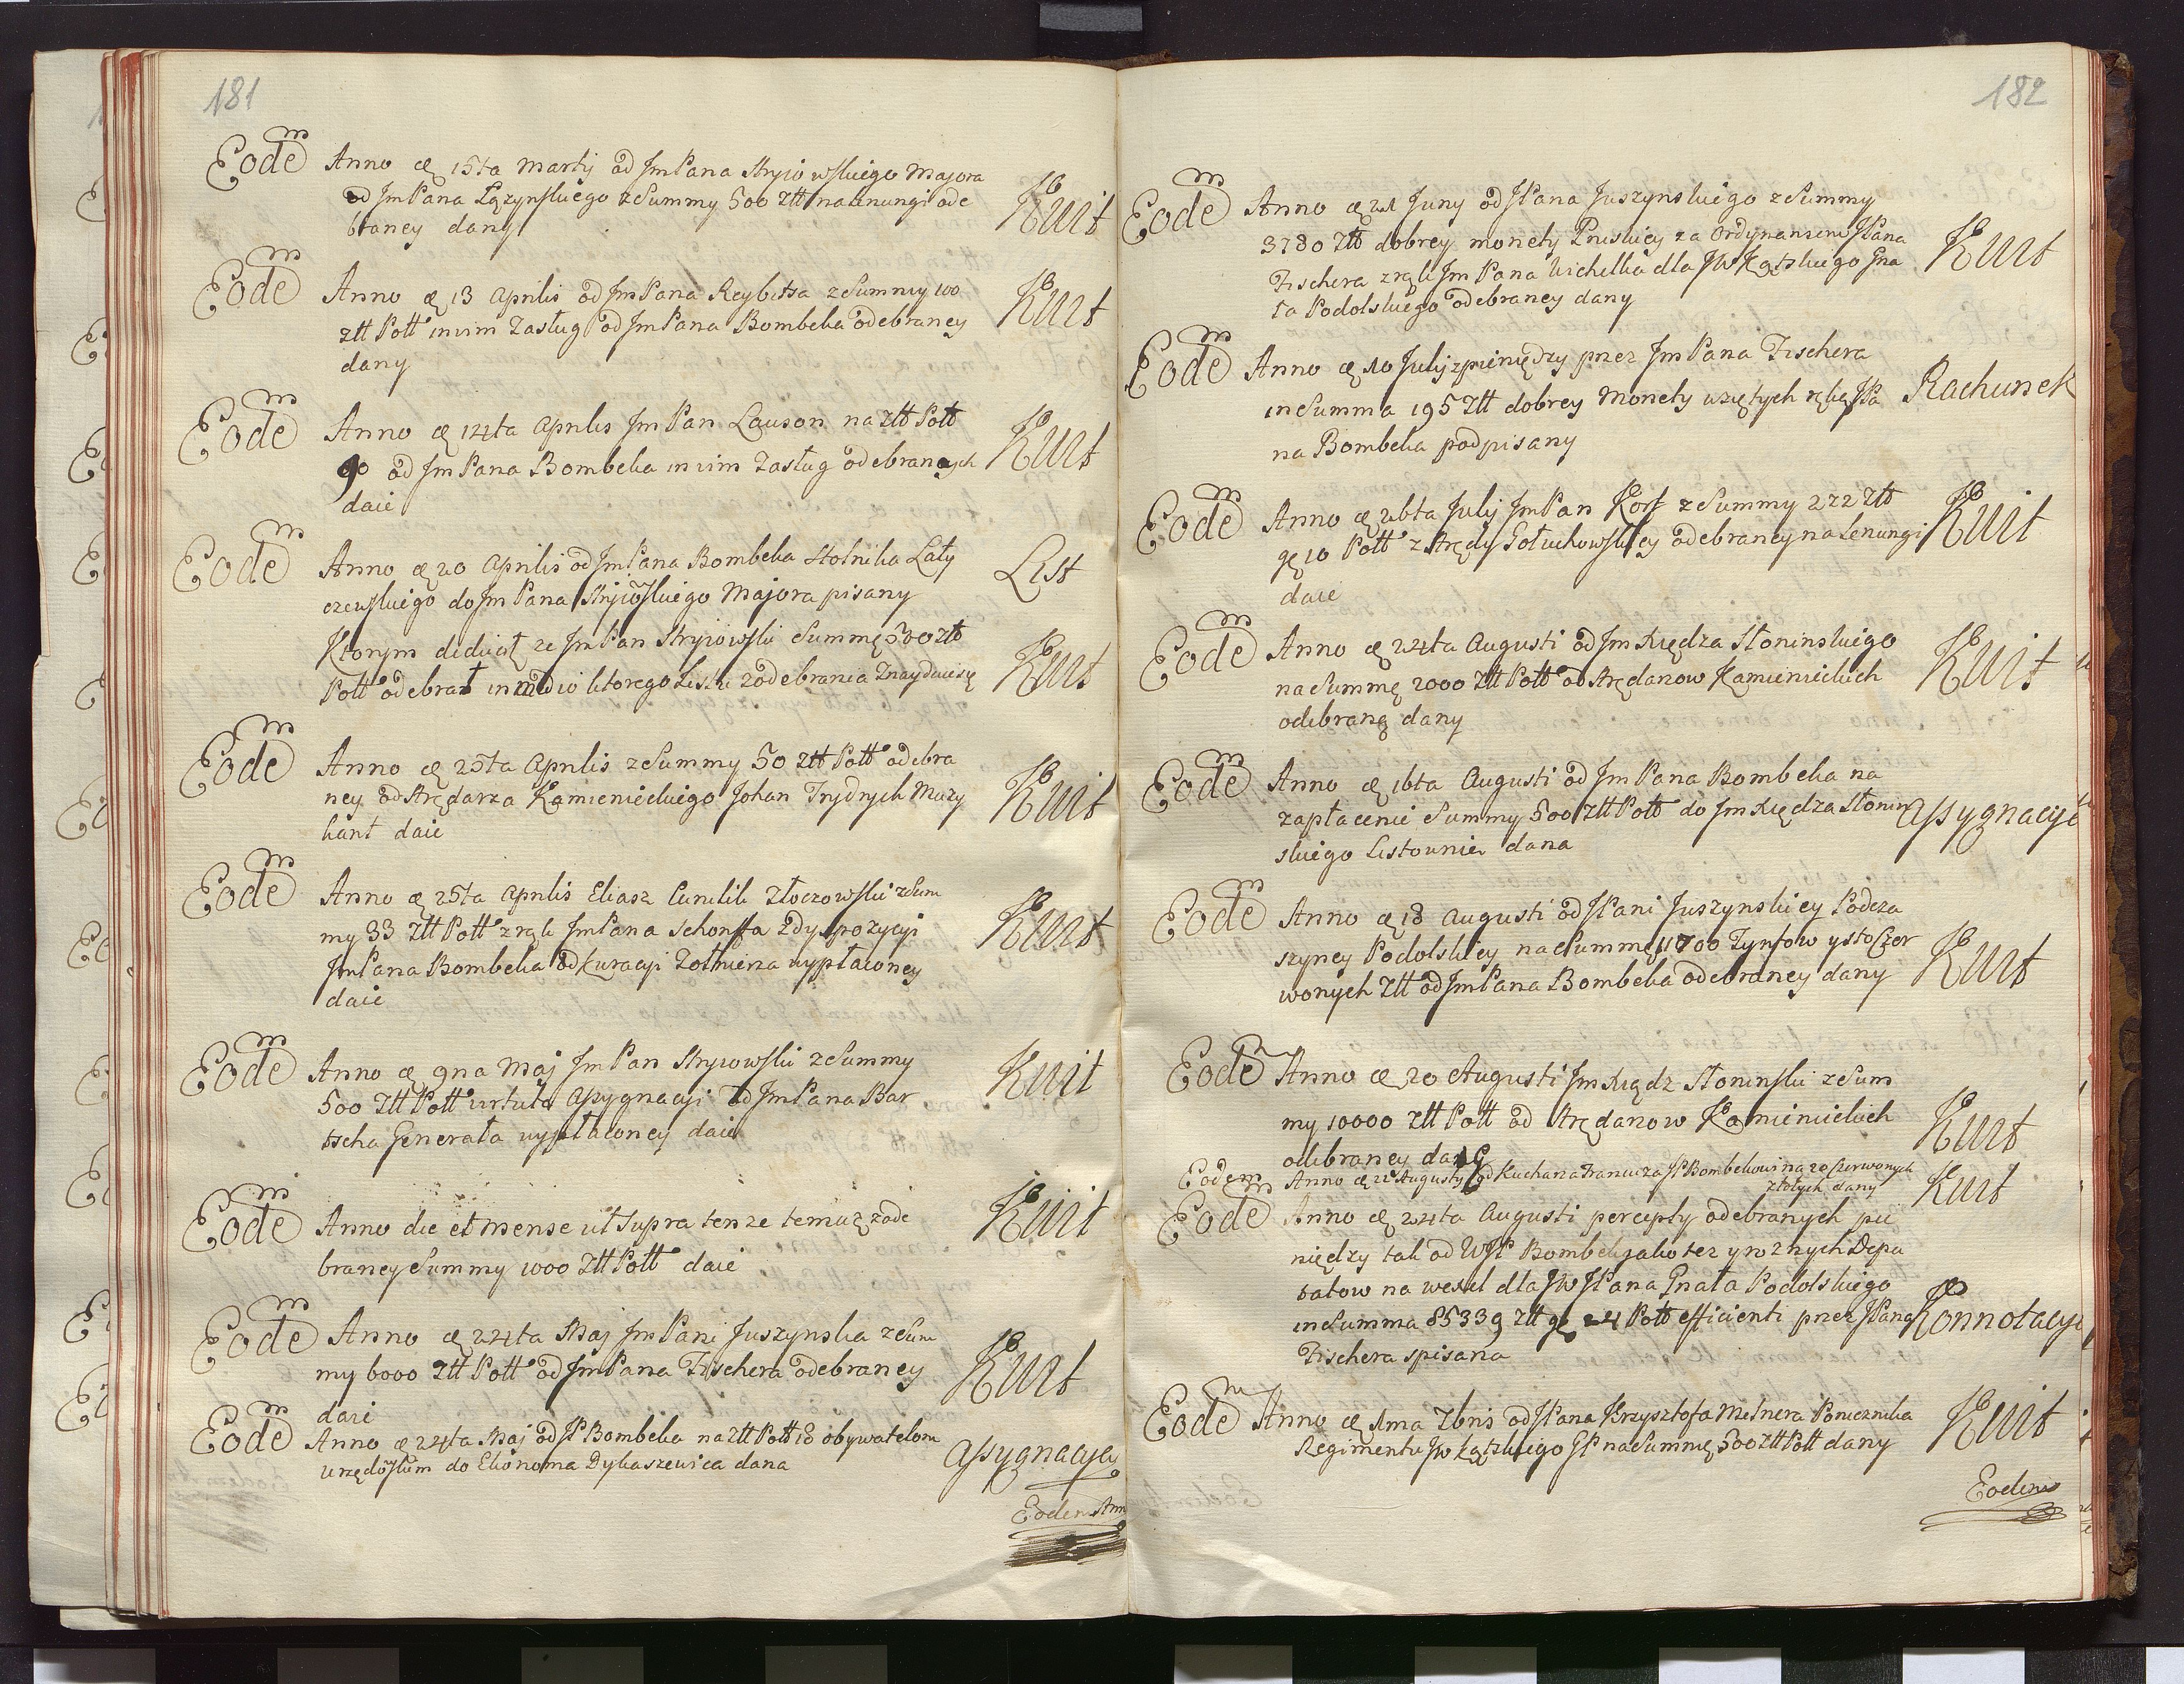 181
Eodem Anno œ 15ta Martij od JmPana Stryiowskiego Majora
od JmPana Łązynskiego z Summy 500 Ztt na Lnungi ode
braney dany Kwit
Eodem Anno œ 13 Aprilis od JmPana Reybitsa z Summy 100
ztt Pott in vim Zasług od JmPana Bombeka odebraney
dany Kwit
Eodem Anno œ 14ta Aprilis Jm Pan Lauson na Ztt Pott
90 od Jm Pana Bombeka in vim Zasług odebranych
daie Kwit
Eodem Anno œ 20 Aprilis od JmPana Bombeka Stolnika Laty
czewskiego do Jm Pana Stryiowskiego Majora pisany List
Ktorym ze Jm Pan Stryiowski Summę 500 ztt
Pott odebrał ktorego Listu z odebrania Znayduie się Kwit
Eodem Anno œ 25ta Aprilis z Summy 50 Ztt Pott odebra
ney od Arędarza Kamienieckiego Johan Frydrych Muzy
kant daie Kwit
Eodem Anno œ 25ta Aprilis Eliasz Cyrulik Złoczowski z Sum
my 33 Ztt Pott z rąk JmPana Schonffa z dyspozycyi
JmPana Bombeka od Kuracyi Zołnierza wypłaconey
daie Kwit
Eodem Anno œ 9na Maj Jm Pan Stryiowski z Summy
500 Ztt Pott virtute Assygnacyi od JmPana Bar
tscha Generała wypłaconey daie Kwit
Eodem Anno die et mense ut Supra tenze temuż z ode
braney Summy 1000 Ztt Pott daie Kwit
Eodem Anno œ 24ta Maj Jm Pani Juszynska z Sum
my 6000 Ztt Pott od JmPana Fischera odebraney
daie Kwit
Eodem Anno œ 24ta Maj od JP Bombeka na Ztt Pott 18 obywatelom
Urzędowskim do Ekonoma Dykaszewica dana Assygnacya
Eodem Ann
182
Eodem Anno œ 21 Juny od JPana Juszynskiego z Summy
3780 Ztt dobrey monety Pruskiey za Ordynansem JPana
Fischera z rąk Jm Pana Kichelka dla JW Kątskiego Gna
ła Podolskiego odebraney dany Kwit
Eodem Anno œ 10 Julij z pieniędzy przez Jm Pana Fischera
in Summa 195 Ztt dobrey Monety wziętych ręką JPa
na Bombeka podpisany Rachunek
Eodem Anno œ 26ta Julij JmPan Korf z Summy 272 Ztt
gę 10 Pott z Arędy Gołuchowskiey odebraney na Lenungi
daie Kwit
Eodem Anno œ 24ta Augusti od Jm Xiędza Słoninskiego
na Summę 2000 Ztt Pott od Arędarzow Kamienieckich
odebraną dany Kwit
Eodem Anno œ 16ta Augusti od Jm Pana Bombeka na
zapłacenie Summy 500 Ztt Pott do Jm Xiędza Słonin
skiego Listownie dana Assygnacya
Eodem Anno œ 18 Augusti od JPani Juszynskiey Podcza
szyney Podolskiey na Summę 11700 Tynfow y sto Czer
wonych Ztt od JmPana Bombeka odebraney dany Kwit
Eodem Anno œ 20 Augusti Jm Xiądz Słoninski z Sum
my 10000 Ztt Pott od Arędarzow Kamienieckich
odebraney daie Kwit
Eodem Anno œ 22 Augusty od Kucharza Francuza JP Bombekowi na 20 Czerwonych
złotych dany Kwit
Eodem Anno œ 24ta Augusti percepty odebranych pie
niędzy tak od WJP Bombeka jako tez y roznych Depu
tatow na wexel dla JW JPana Gnała Podolskiego
in Summa 85339 Ztt gę 24 Pott efficienti przez JPana
Fischera spisana Konnotacya
Eodem Anno œ 1ma 7bris od JPana Krzysztofa Metnera Porucznika
Regimentu JW Kątskiego GP na Summę 500 Ztt Pott dany Kwit
Eodem